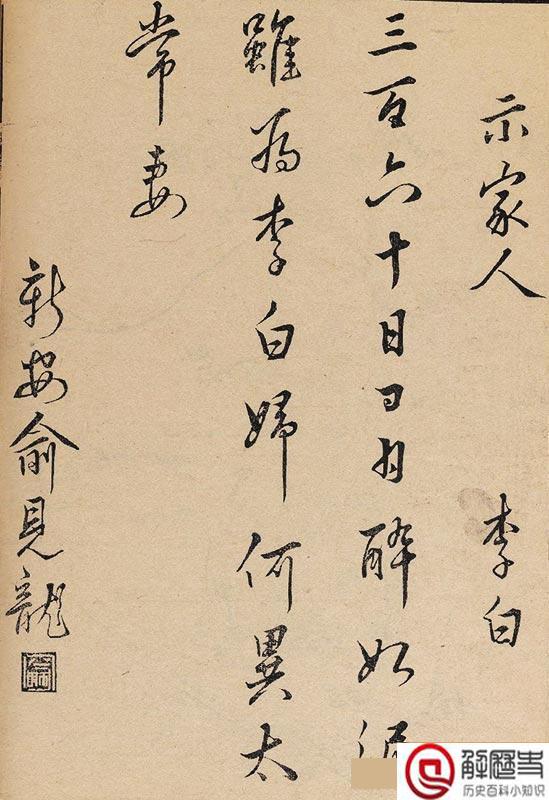 示家人 李白
三百六十日日日醉如泥
雖為李白婦何異太
常妻
新安俞見龍
解歷史
历史百科小知识